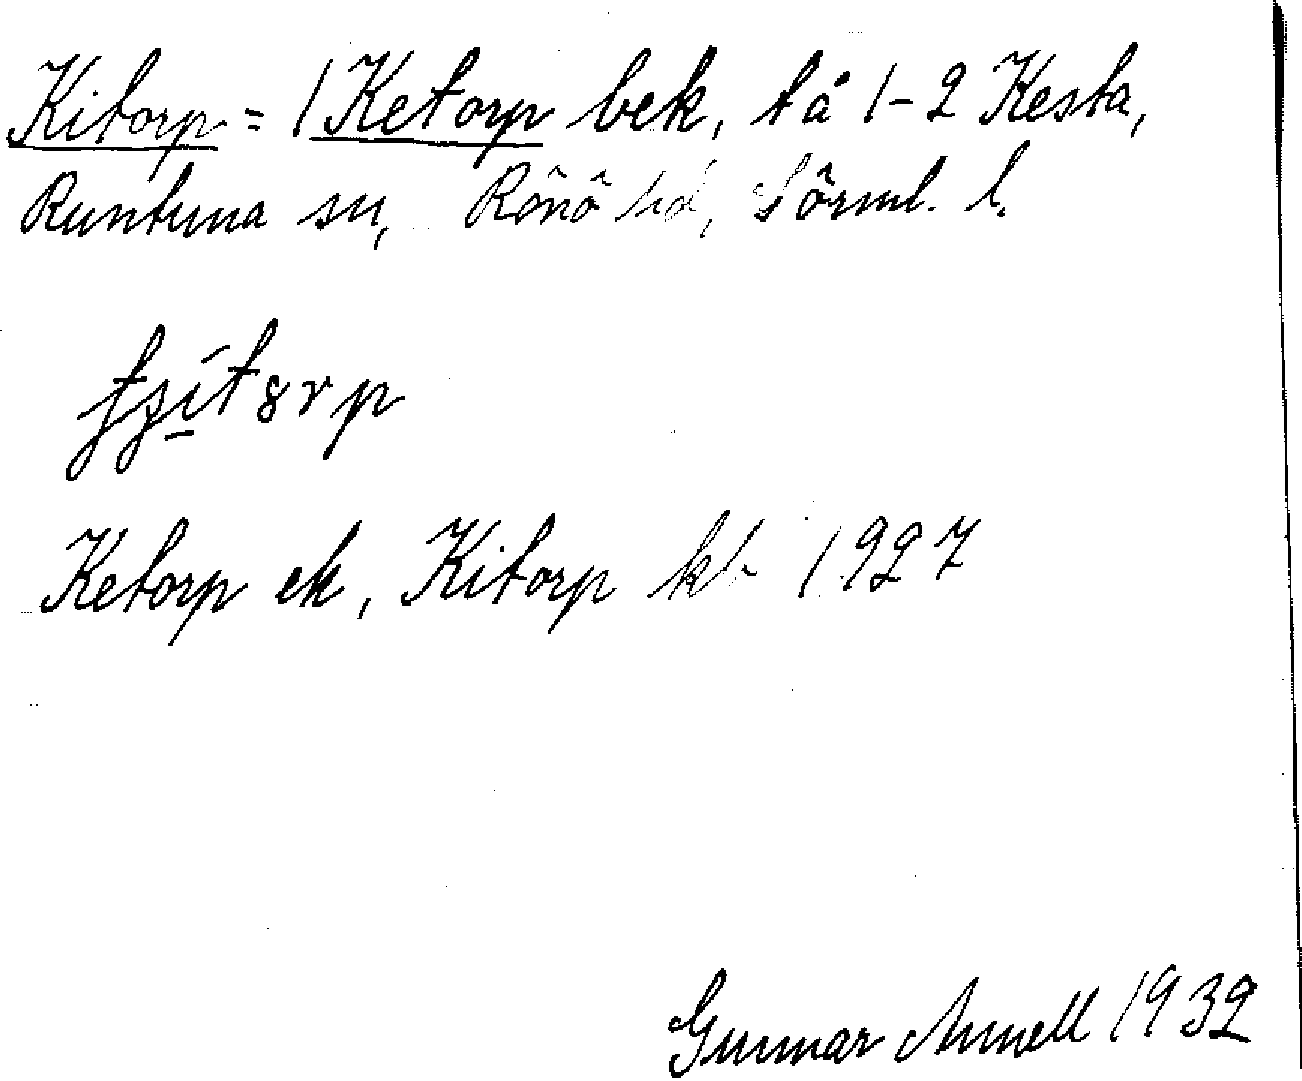 Kitorp = 1 Ketorp bek, tå 1-2 Kesta,
Runtuna sn, Rönö hd, Sörml. l.
Ketorp ek, Kitorp kb 1927
Gunnar Annell 1932